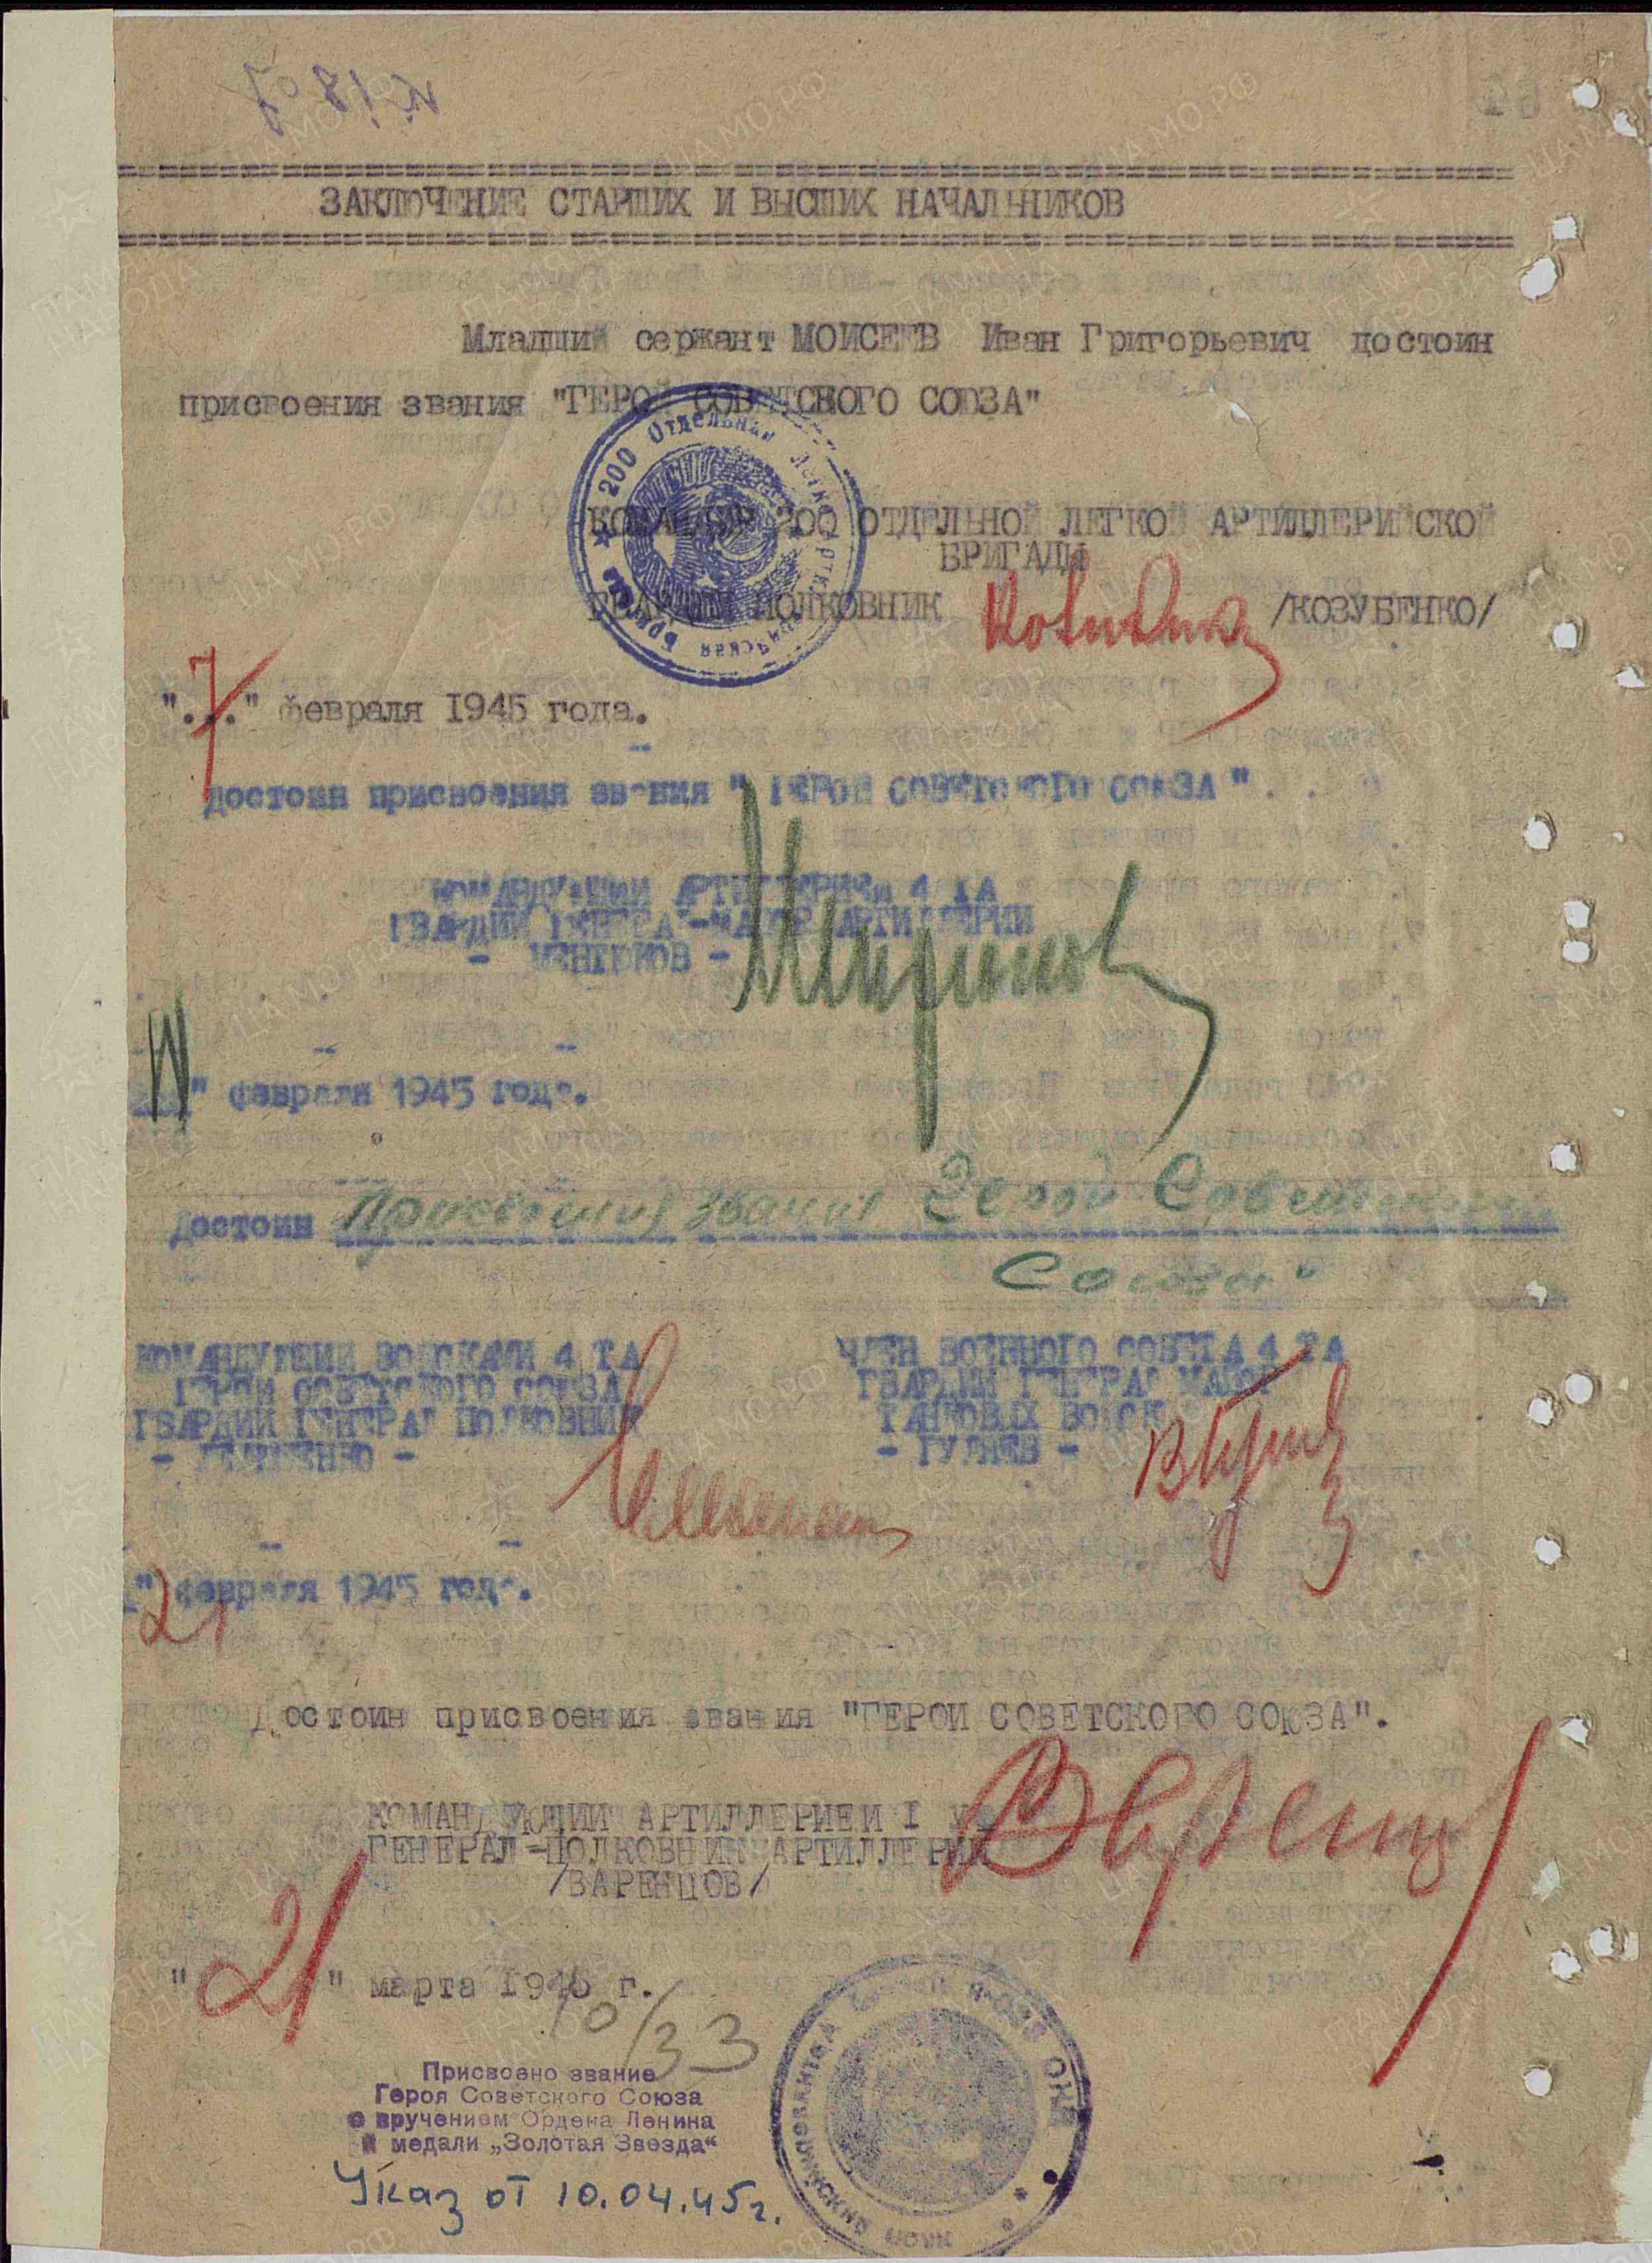 ЗАКЛЮЧЕНИЕ СТАРШИХ И ВЫСШИХ НАЧАЛЬНИКОВ
Младший сержант МОИСЕЕВ Иван Григорьевич достоин
присвоения звания "ГЕРОЙ СОВЕТСКОГО СОЮЗА"
КОМАНДИР 200 ОТДЕЛЬНОЙ ЛЕГКОЙ АРТИЛЛЕРИЙСКОЙ
БРИГАДЫ
ГВАРДИИ ПОЛКОВНИК /КОЗУБЕНКО/
200 Отдельная Легко Артиллерийская Бригада
"7" февраля 1945 года.
Достоин присвоения звания "ГЕРОЙ СОВЕТСКОГО СОЮЗА".
КОМАНДУЮЩИЙ АРТИЛЛЕРИЕЙ 4 ТА
ГВАРДИИ ГЕНЕРАЛ-МАЙОР АРТИЛЛЕРИИ
- МЕНТЮКОВ -
" февраля 1945 года.
Достоин Присвоения звания Герой Советского
Союза"
КОМАНДУЮЩИЙ ВОЙСКАМИ 4 ТА
ГЕРОЙ СОВЕТСКОГО СОЮЗА
ГВАРДИИ ГЕНЕРАЛ ПОЛКОВНИК
- ЛЕЛЮШЕНКО -
ЧЛЕН ВОЕННОГО СОВЕТА 4 ТА
ГВАРДИИ ГЕНЕРАЛ МАЙОР
ТАНКОВЫХ ВОЙСК
- ГУЛЯЕВ -
21" февраля 1945 года.
Достоин присвоения звания "ГЕРОЙ СОВЕТСКОГО СОЮЗА".
КОМАНДУЮЩИЙ АРТИЛЛЕРИЕЙ I
ГЕНЕРАЛ-ПОЛКОВНИК АРТИЛЛЕРИИ
/ВАРЕНЦОВ/
"21" марта 1945 г.
10/33
Присвоено звание
Героя Советского Союза
с вручением Ордена Ленина
и медали „Золотая Звезда“
Указ от 10.04.45г.